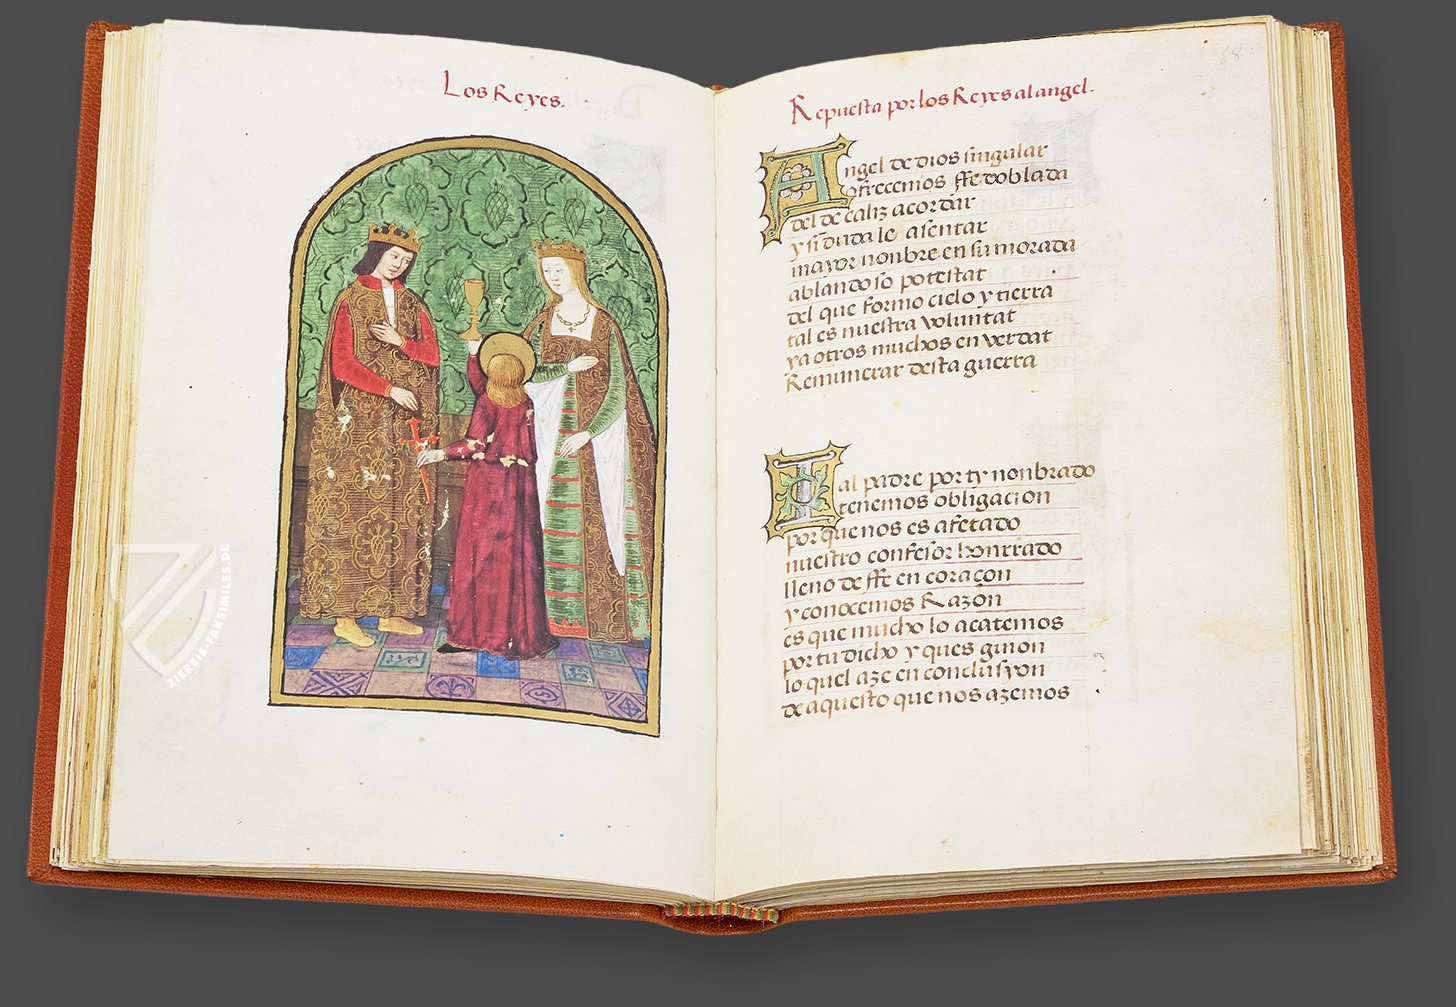 Los Reyes.
Repuesta por los Reyes al angel.
68
Angel de dios singular
ofrecemos ffe doblada
del de caliz acordar
y si duda le asentar
mayor nonbre en su morada
ablando so potestat
del que formo cielo y tierra
tal es nuestra voluntat
ya otros muchos en verdat
Remunerar desta guerra
al padre por ty nonbrado
tenemos obligacion
por que nos es afetado
nuestro confesor honrrado
lleno de ffe en coraçon
y conocemos Razon
es que mucho lo acatemos
por tu dicho y ques guion
lo quel aze en conclusyon
de aquesto que nos azemos
ZIEREIS-FAKSIMILES.DE